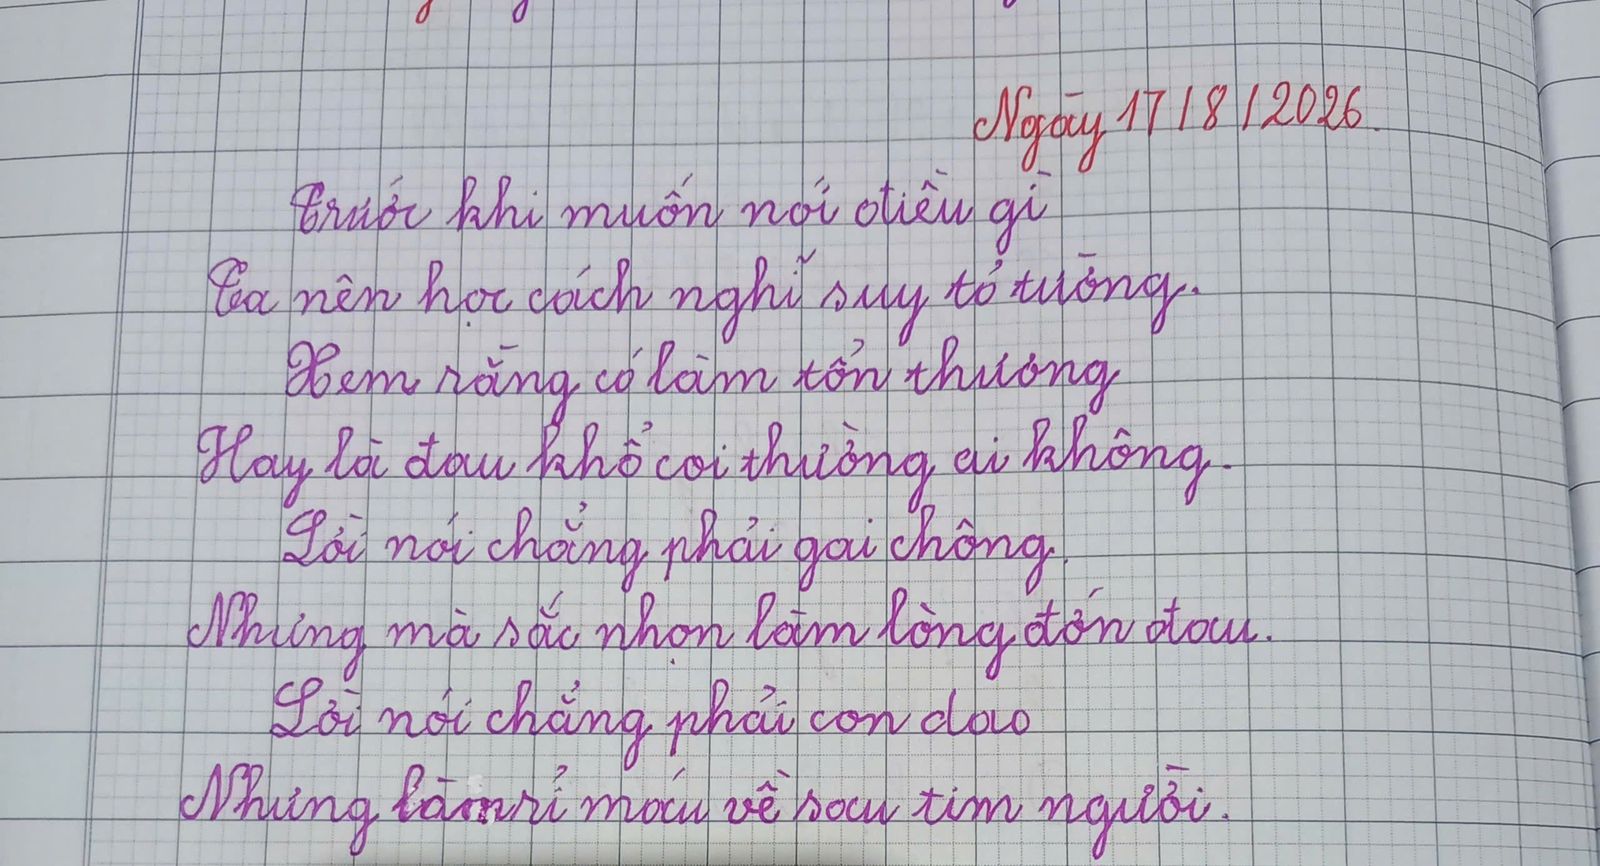 Ngày 17/8/2026.
Trước khi muốn nói điều gì
Ta nên học cách nghĩ suy tỏ tường.
Xem rằng có làm tổn thương
Hay là đau khổ coi thường ai không.
Lời nói chẳng phải gai chông
Nhưng mà sắc nhọn làm lòng đớn đau.
Lời nói chẳng phải con dao
Nhưng làm rỉ máu về sau tim người.